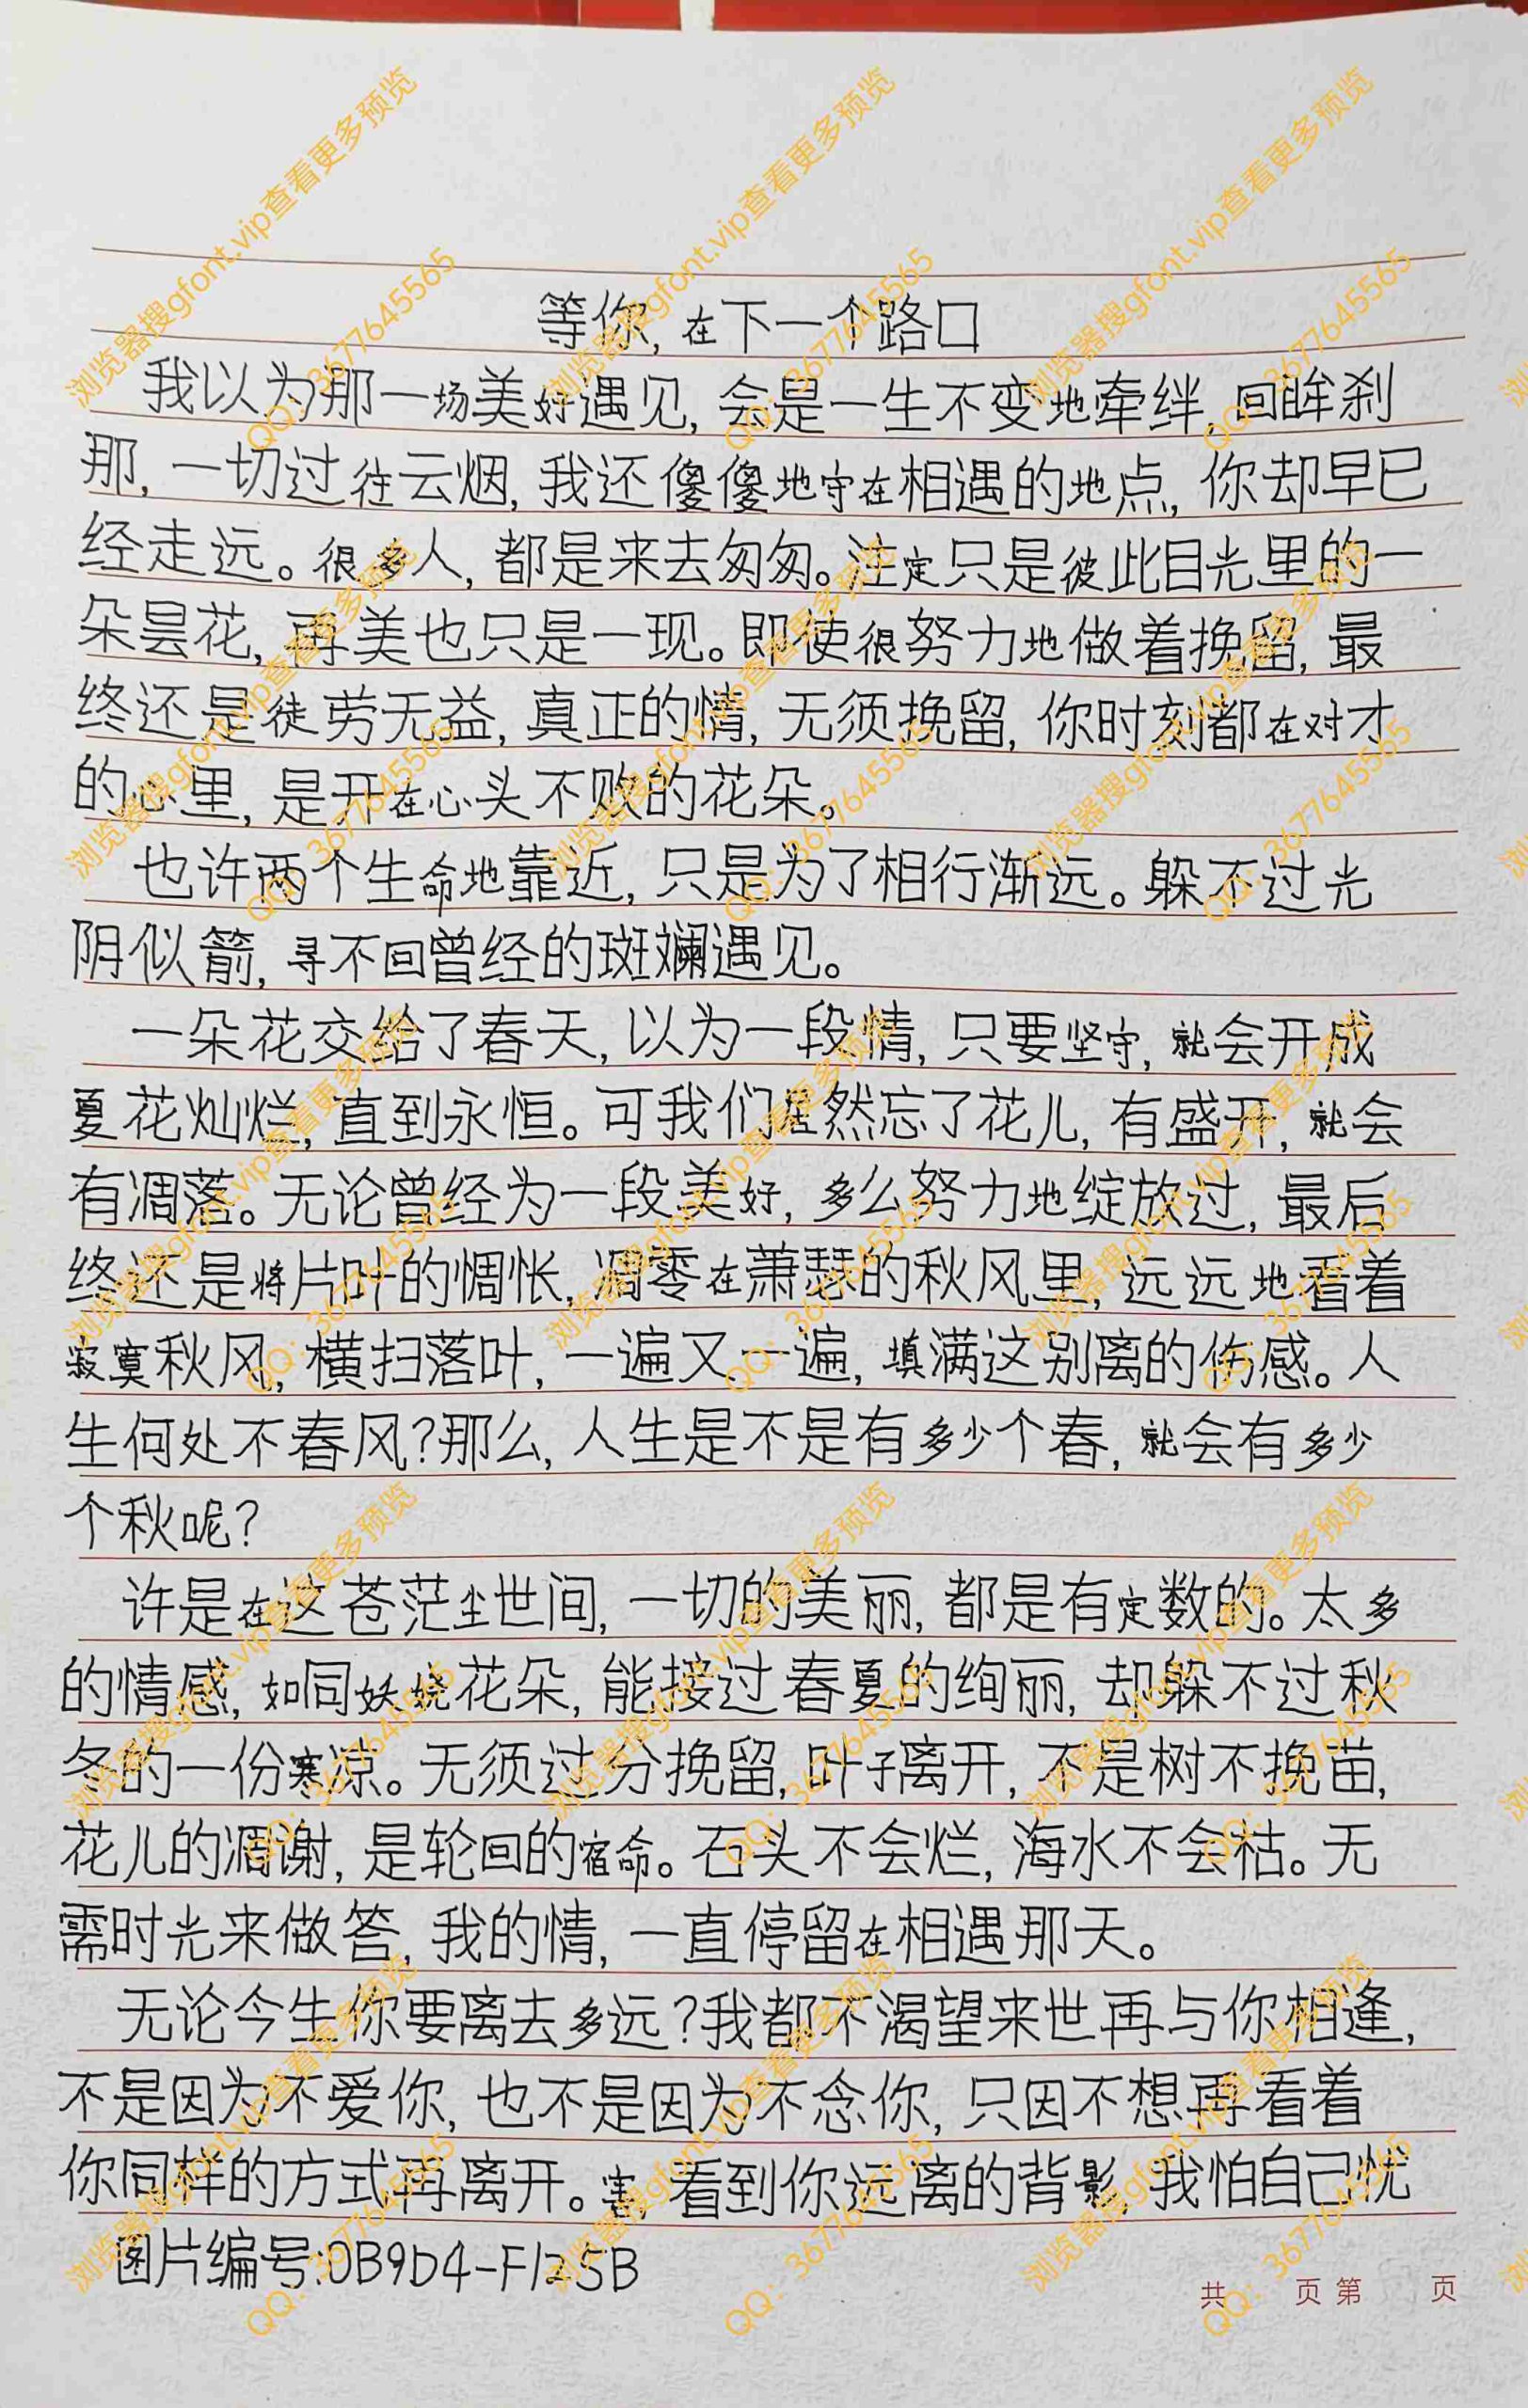 等你,在下一个路口
我以为那一场美好遇见,会是一生不变地牵绊,回眸刹
那,一切过往云烟,我还傻傻地守在相遇的地点,你却早已
经走远。很多人,都是来去匆匆。注定只是彼此目光里的一
朵昙花,再美也只是一现。即使很努力地做着挽留,最
终还是徒劳无益,真正的情,无须挽留,你时刻都在对才
的心里,是开在心头不败的花朵。
也许两个生命地靠近,只是为了相行渐远。躲不过光
阴似箭,寻不回曾经的斑斓遇见。
一朵花交给了春天,以为一段情,只要坚守,就会开成
夏花灿烂,直到永恒。可我们居然忘了花儿,有盛开,就会
有凋落。无论曾经为一段美好,多么努力地绽放过,最后
终还是将片叶的惆怅,凋零在萧瑟的秋风里,远远地看着
寂寞秋风,横扫落叶,一遍又一遍,填满这别离的伤感。人
生何处不春风?那么,人生是不是有多少个春,就会有多少
个秋呢?
许是在这苍茫尘世间,一切的美丽,都是有定数的。太多
的情感,如同妖娆花朵,能接过春夏的绚丽,却躲不过秋
冬的一份寒凉。无须过分挽留,叶子离开,不是树不挽苗,
花儿的凋谢,是轮回的宿命。石头不会烂,海水不会枯。无
需时光来做答,我的情,一直停留在相遇那天。
无论今生你要离去多远?我都不渴望来世再与你相逢,
不是因为不爱你,也不是因为不念你,只因不想再看着
你同样的方式再离开。害,看到你远离的背影,我怕自己忧
图片编号:0B9D4-F125B
共 页 第 页
浏览器搜gfont.vip查看更多预览
QQ：3677645565